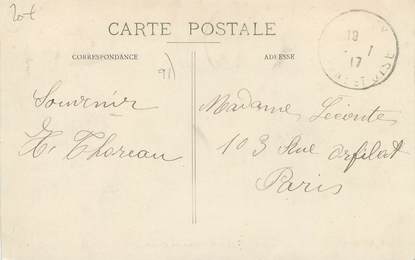 20f
CARTE POSTALE
CORRESPONDANCE
ADRESSE
91)
19
- 1
17
ET OISE
Souvenir
H. Thoreau
Madame Leconte
103 Rue Orfilat
Paris